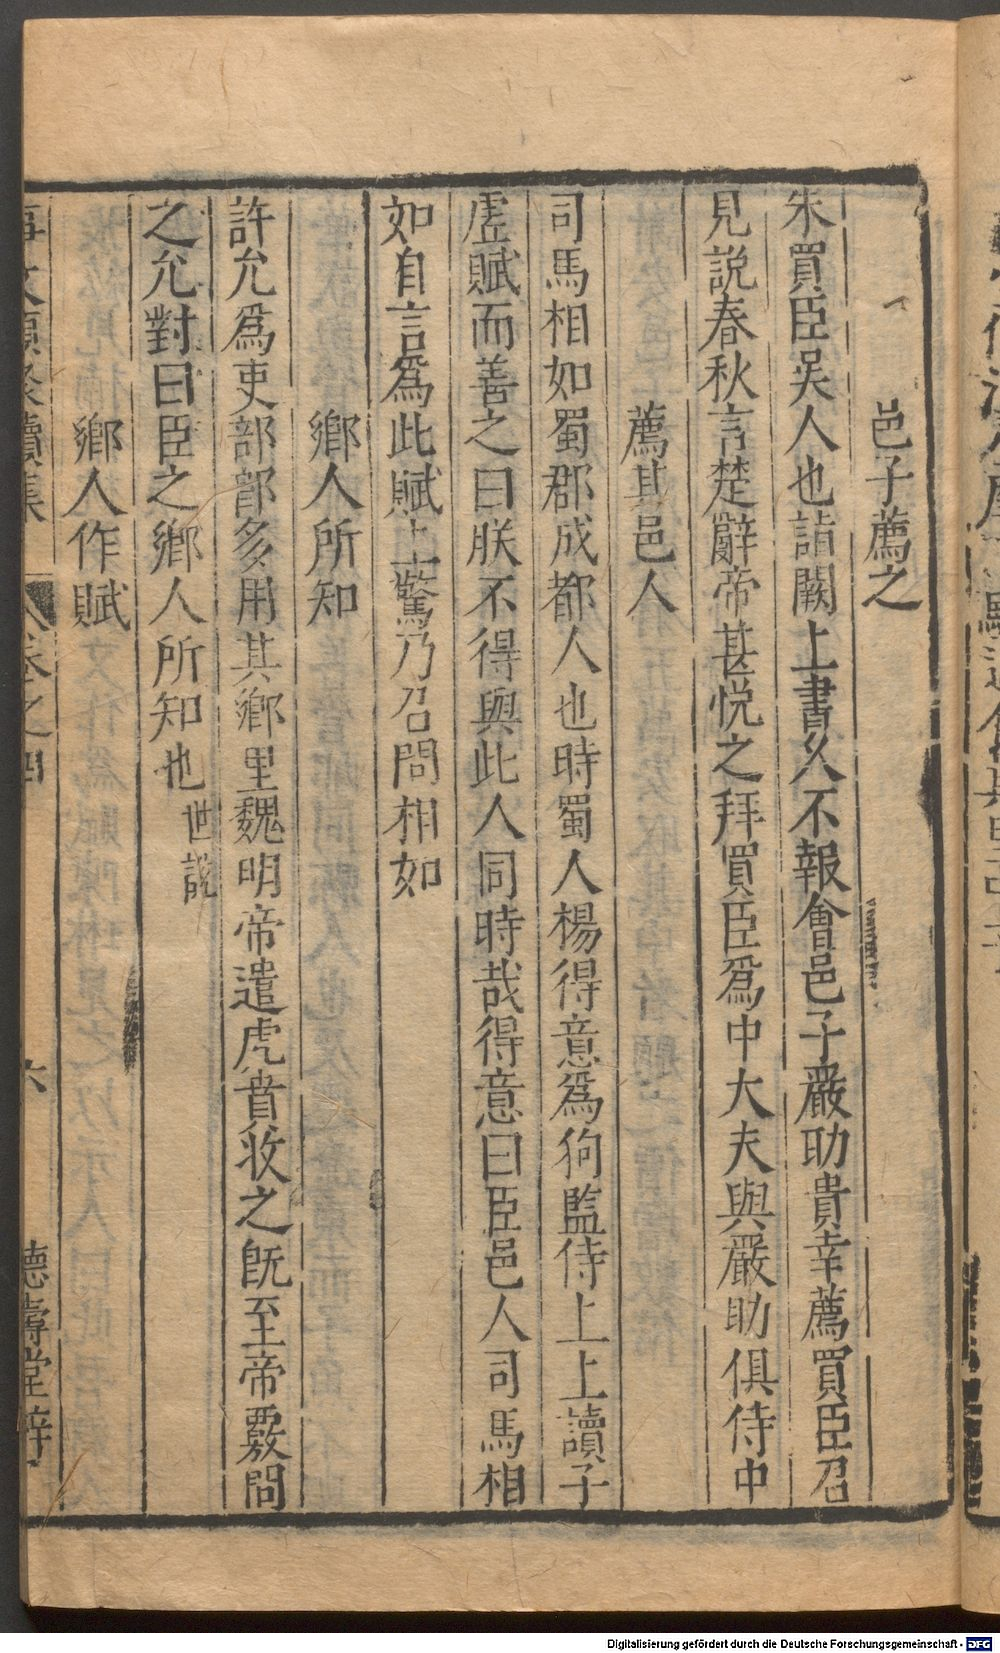 邑子薦之
朱買臣吳人也詣闕上書久不報會邑子嚴助貴幸薦買臣召
見説春秋言楚辭帝甚悦之拜買臣爲中大夫與嚴助俱侍中
薦其邑人
司馬相如蜀郡成都人也時蜀人楊得意爲狗監侍上上讀子
虛賦而善之曰朕不得與此人同時哉得意曰臣邑人司馬相
如自言爲此賦上驚乃召問相如
鄉人所知
許允爲吏部郎多用其鄉里魏明帝遣虎賁收之既至帝覈問
之允對曰臣之鄉人所知也世説
鄉人作賦
事文類聚續集 卷之四 六 德壽堂梓
Digitalisierung gefördert durch die Deutsche Forschungsgemeinschaft - DFG